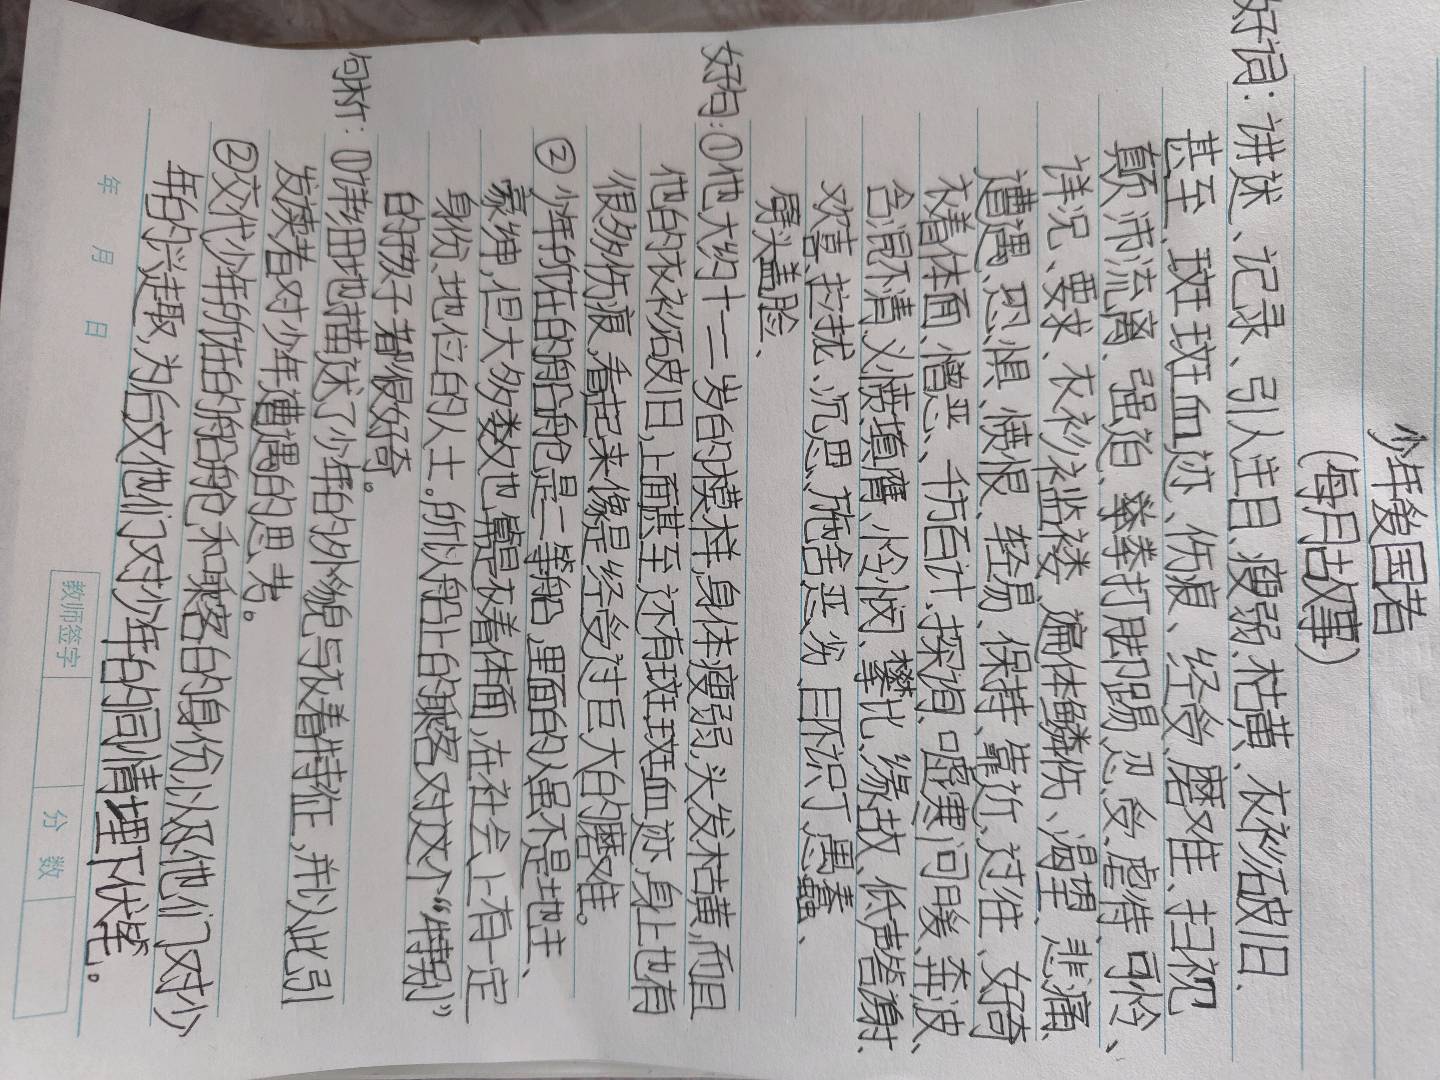 少年爱国者
(每月故事)
好词：讲述、记录、引人注目、瘦弱、枯黄、衣衫破旧、
甚至、斑斑血迹、伤痕、经受、磨难、扫视
颠沛流离、强迫、拳拳打脚踢、忍受、虐待、可怜、
详况、要求、衣衫褴褛、遍体鳞伤、渴望、悲痛、
遭遇、恐惧、愤恨、轻易、保持、靠近、过往、好奇
衣着体面、憎恶、千方百计、探询、嘘寒问暖、奔波、
含混不清、义愤填膺、怜悯、攀比、缘故、低声答谢、
欢喜、拦截、沉思、施舍、恶劣、目不识丁、愚蠢、
劈头盖脸、
好句：①他大约十一二岁的模样，身体瘦弱，头发枯黄，而且
他的衣衫破旧，上面甚至还有斑斑血迹，身上也有
很多伤痕，看起来像是经受过巨大的磨难。
②少年所在的船舱是二等舱，里面的人虽不是地主、
豪绅，但大多数也算是衣着体面，在社会上有一定
身份、地位的人士。所以船上的乘客对这个“特别”
的孩子都很好奇。
句析：①详细地描述了少年的外貌与衣着特征，并以此引
发读者对少年遭遇的思考。
②交代少年所在的船舱和乘客的身份，以及他们对少
年的兴趣，为后文他们对少年的同情埋下伏笔。
年 月 日
教师签字
分数